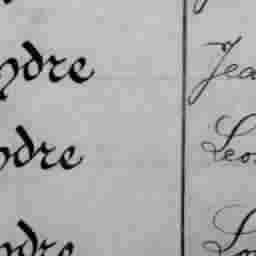 ndre Jea
ndre Leo
ndre Lo